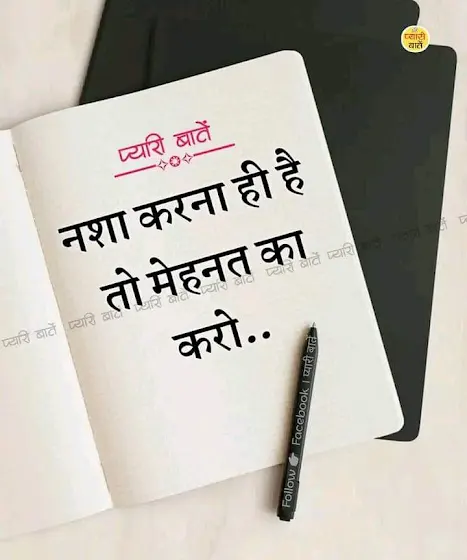 प्यारी
बातें
प्यारि बातें
नशा करना ही है
तो मेहनत का
करो..
प्यारि बातें प्यारि बातें प्यारि बातें प्यारि बातें प्यारि बातें
Follow Facebook । प्यारी बातें